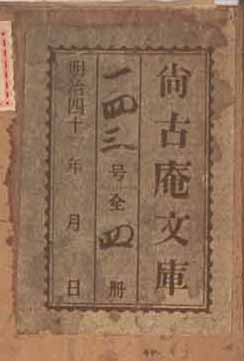 尚古庵文庫
一四三号全四冊
明治四十 年 月 日